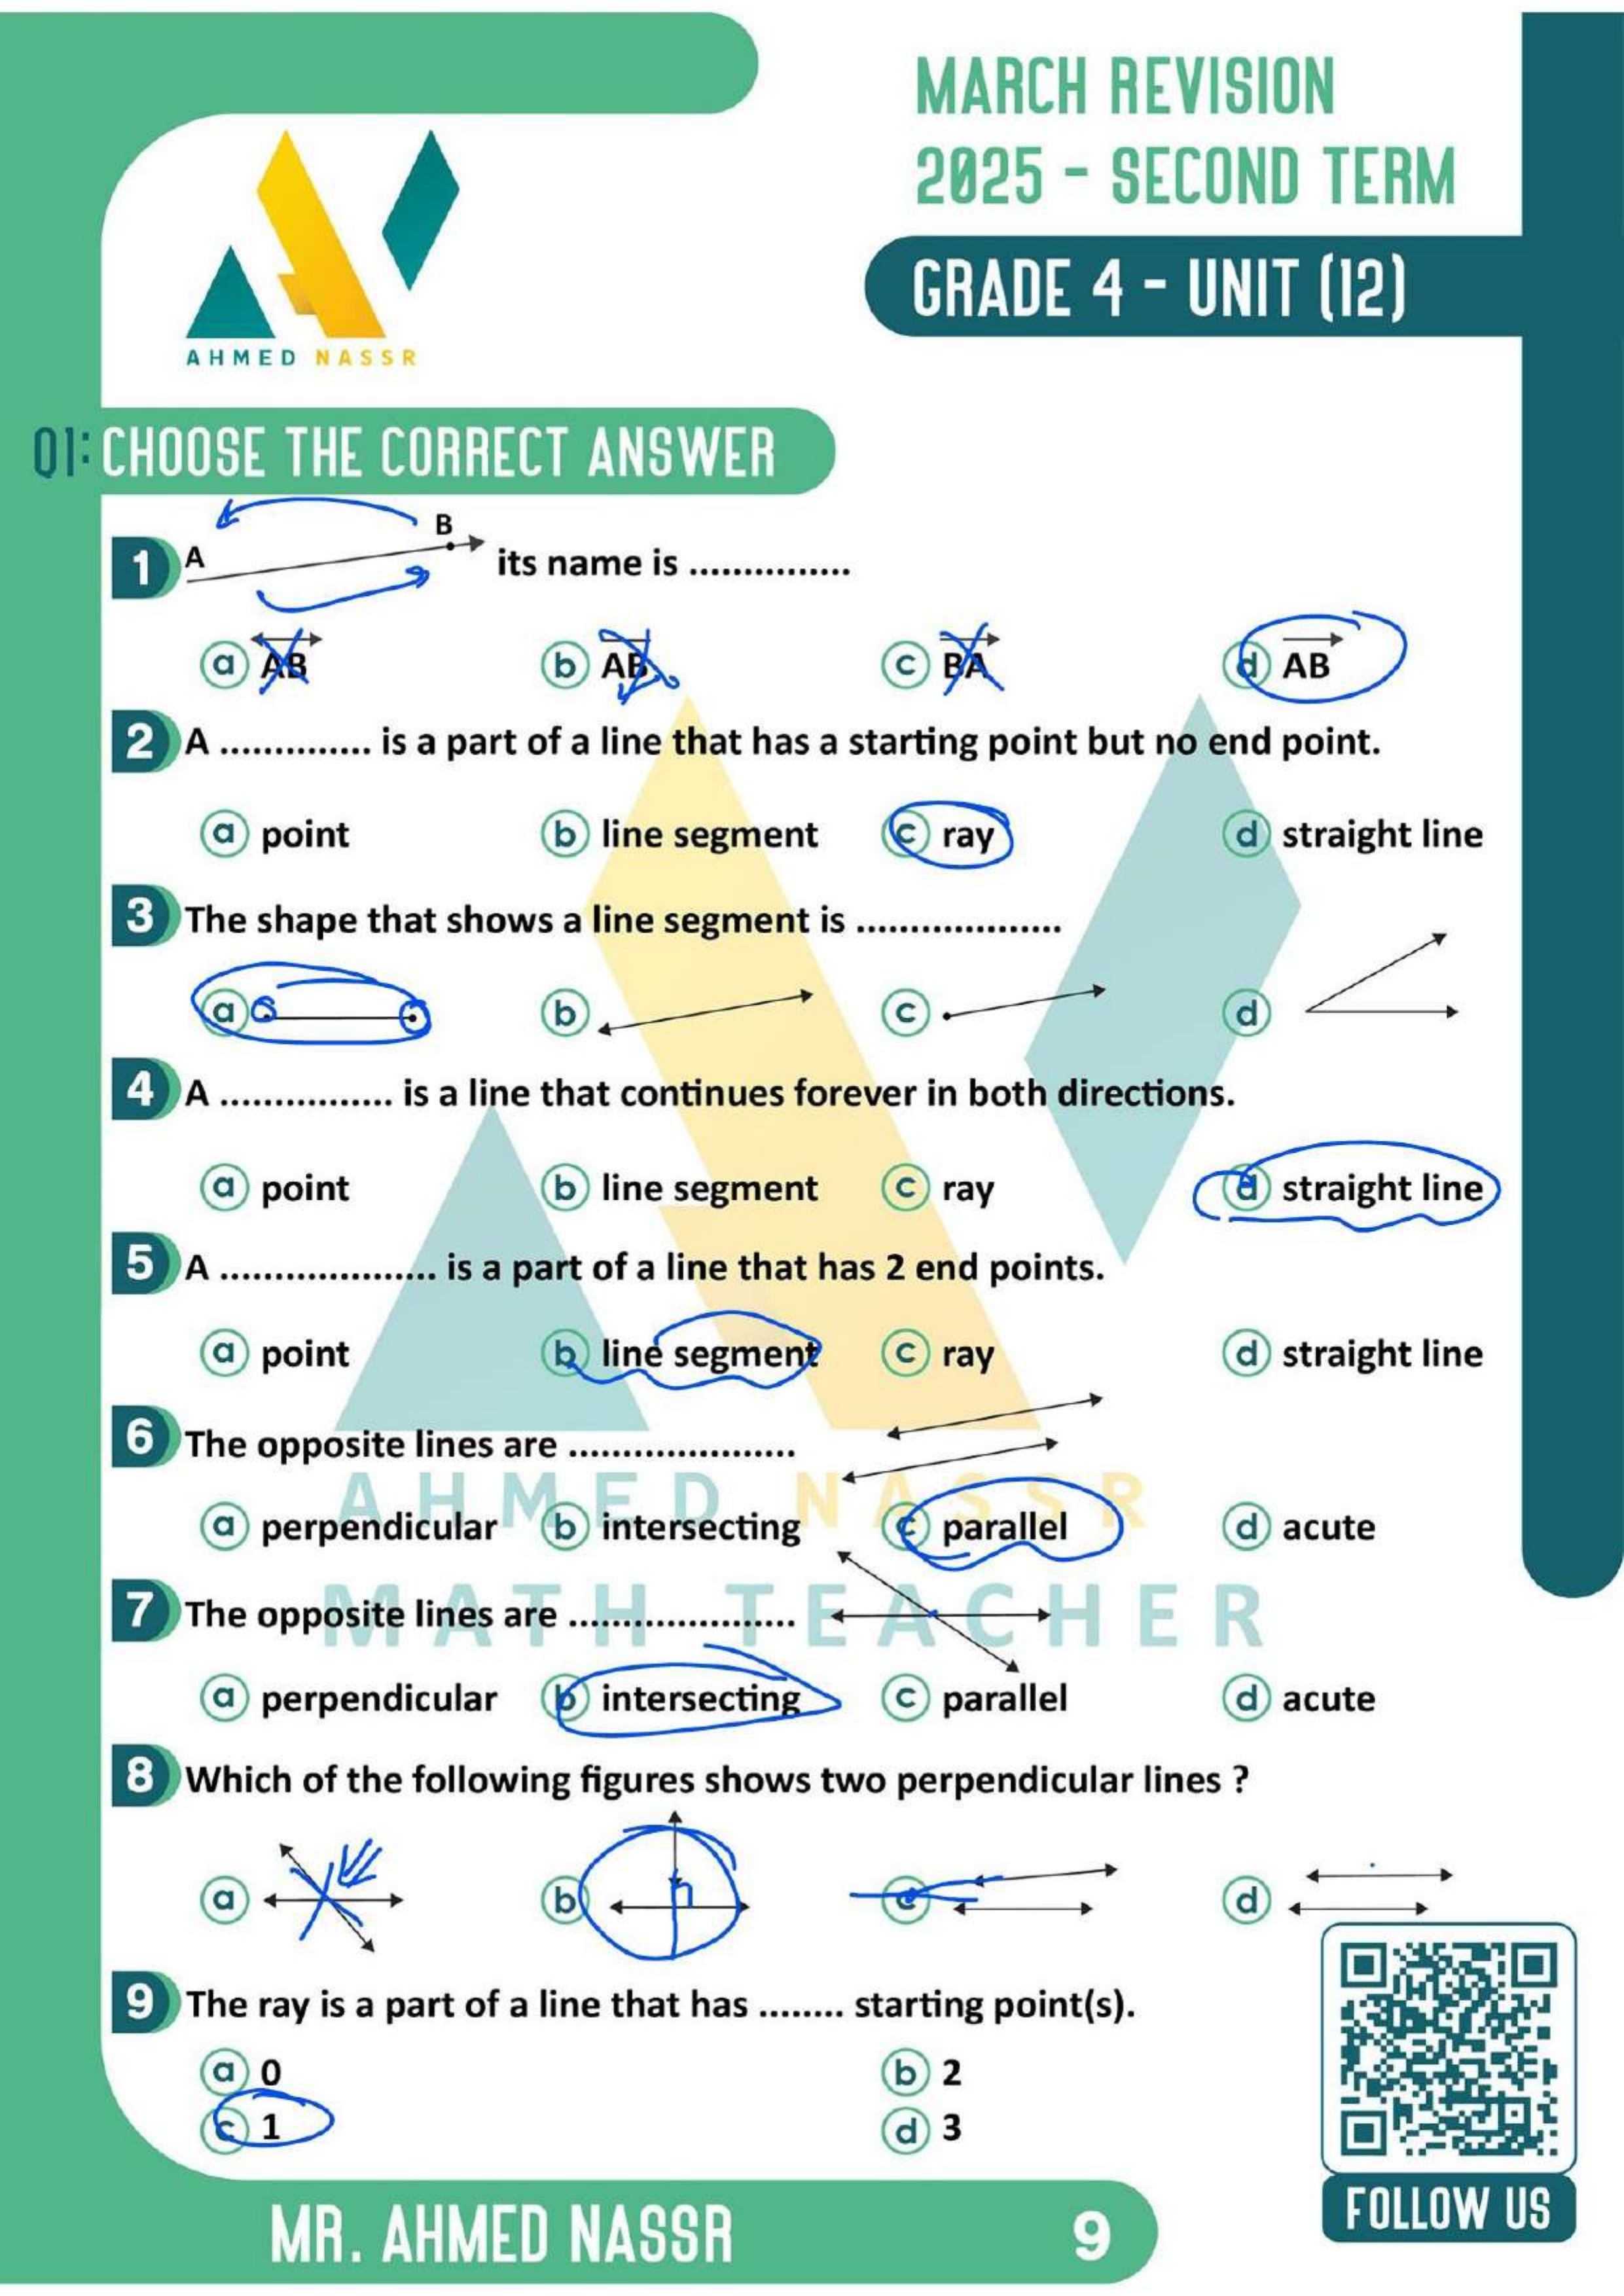 MARCH REVISION
2025 - SECOND TERM
GRADE 4 - UNIT (12)
AHMED NASSR
Q1: CHOOSE THE CORRECT ANSWER
1 A B its name is ...............
a AB b AB c BA d AB
2 A .............. is a part of a line that has a starting point but no end point.
a point b line segment c ray d straight line
3 The shape that shows a line segment is ...................
a b c d
4 A ................ is a line that continues forever in both directions.
a point b line segment c ray d straight line
5 A .................... is a part of a line that has 2 end points.
a point b line segment c ray d straight line
6 The opposite lines are .....................
a perpendicular b intersecting c parallel d acute
7 The opposite lines are .....................
a perpendicular b intersecting c parallel d acute
8 Which of the following figures shows two perpendicular lines ?
a b c d
9 The ray is a part of a line that has ........ starting point(s).
a 0 b 2
c 1 d 3
AHMED NASSR
MATH TEACHER
FOLLOW US
MR. AHMED NASSR 9